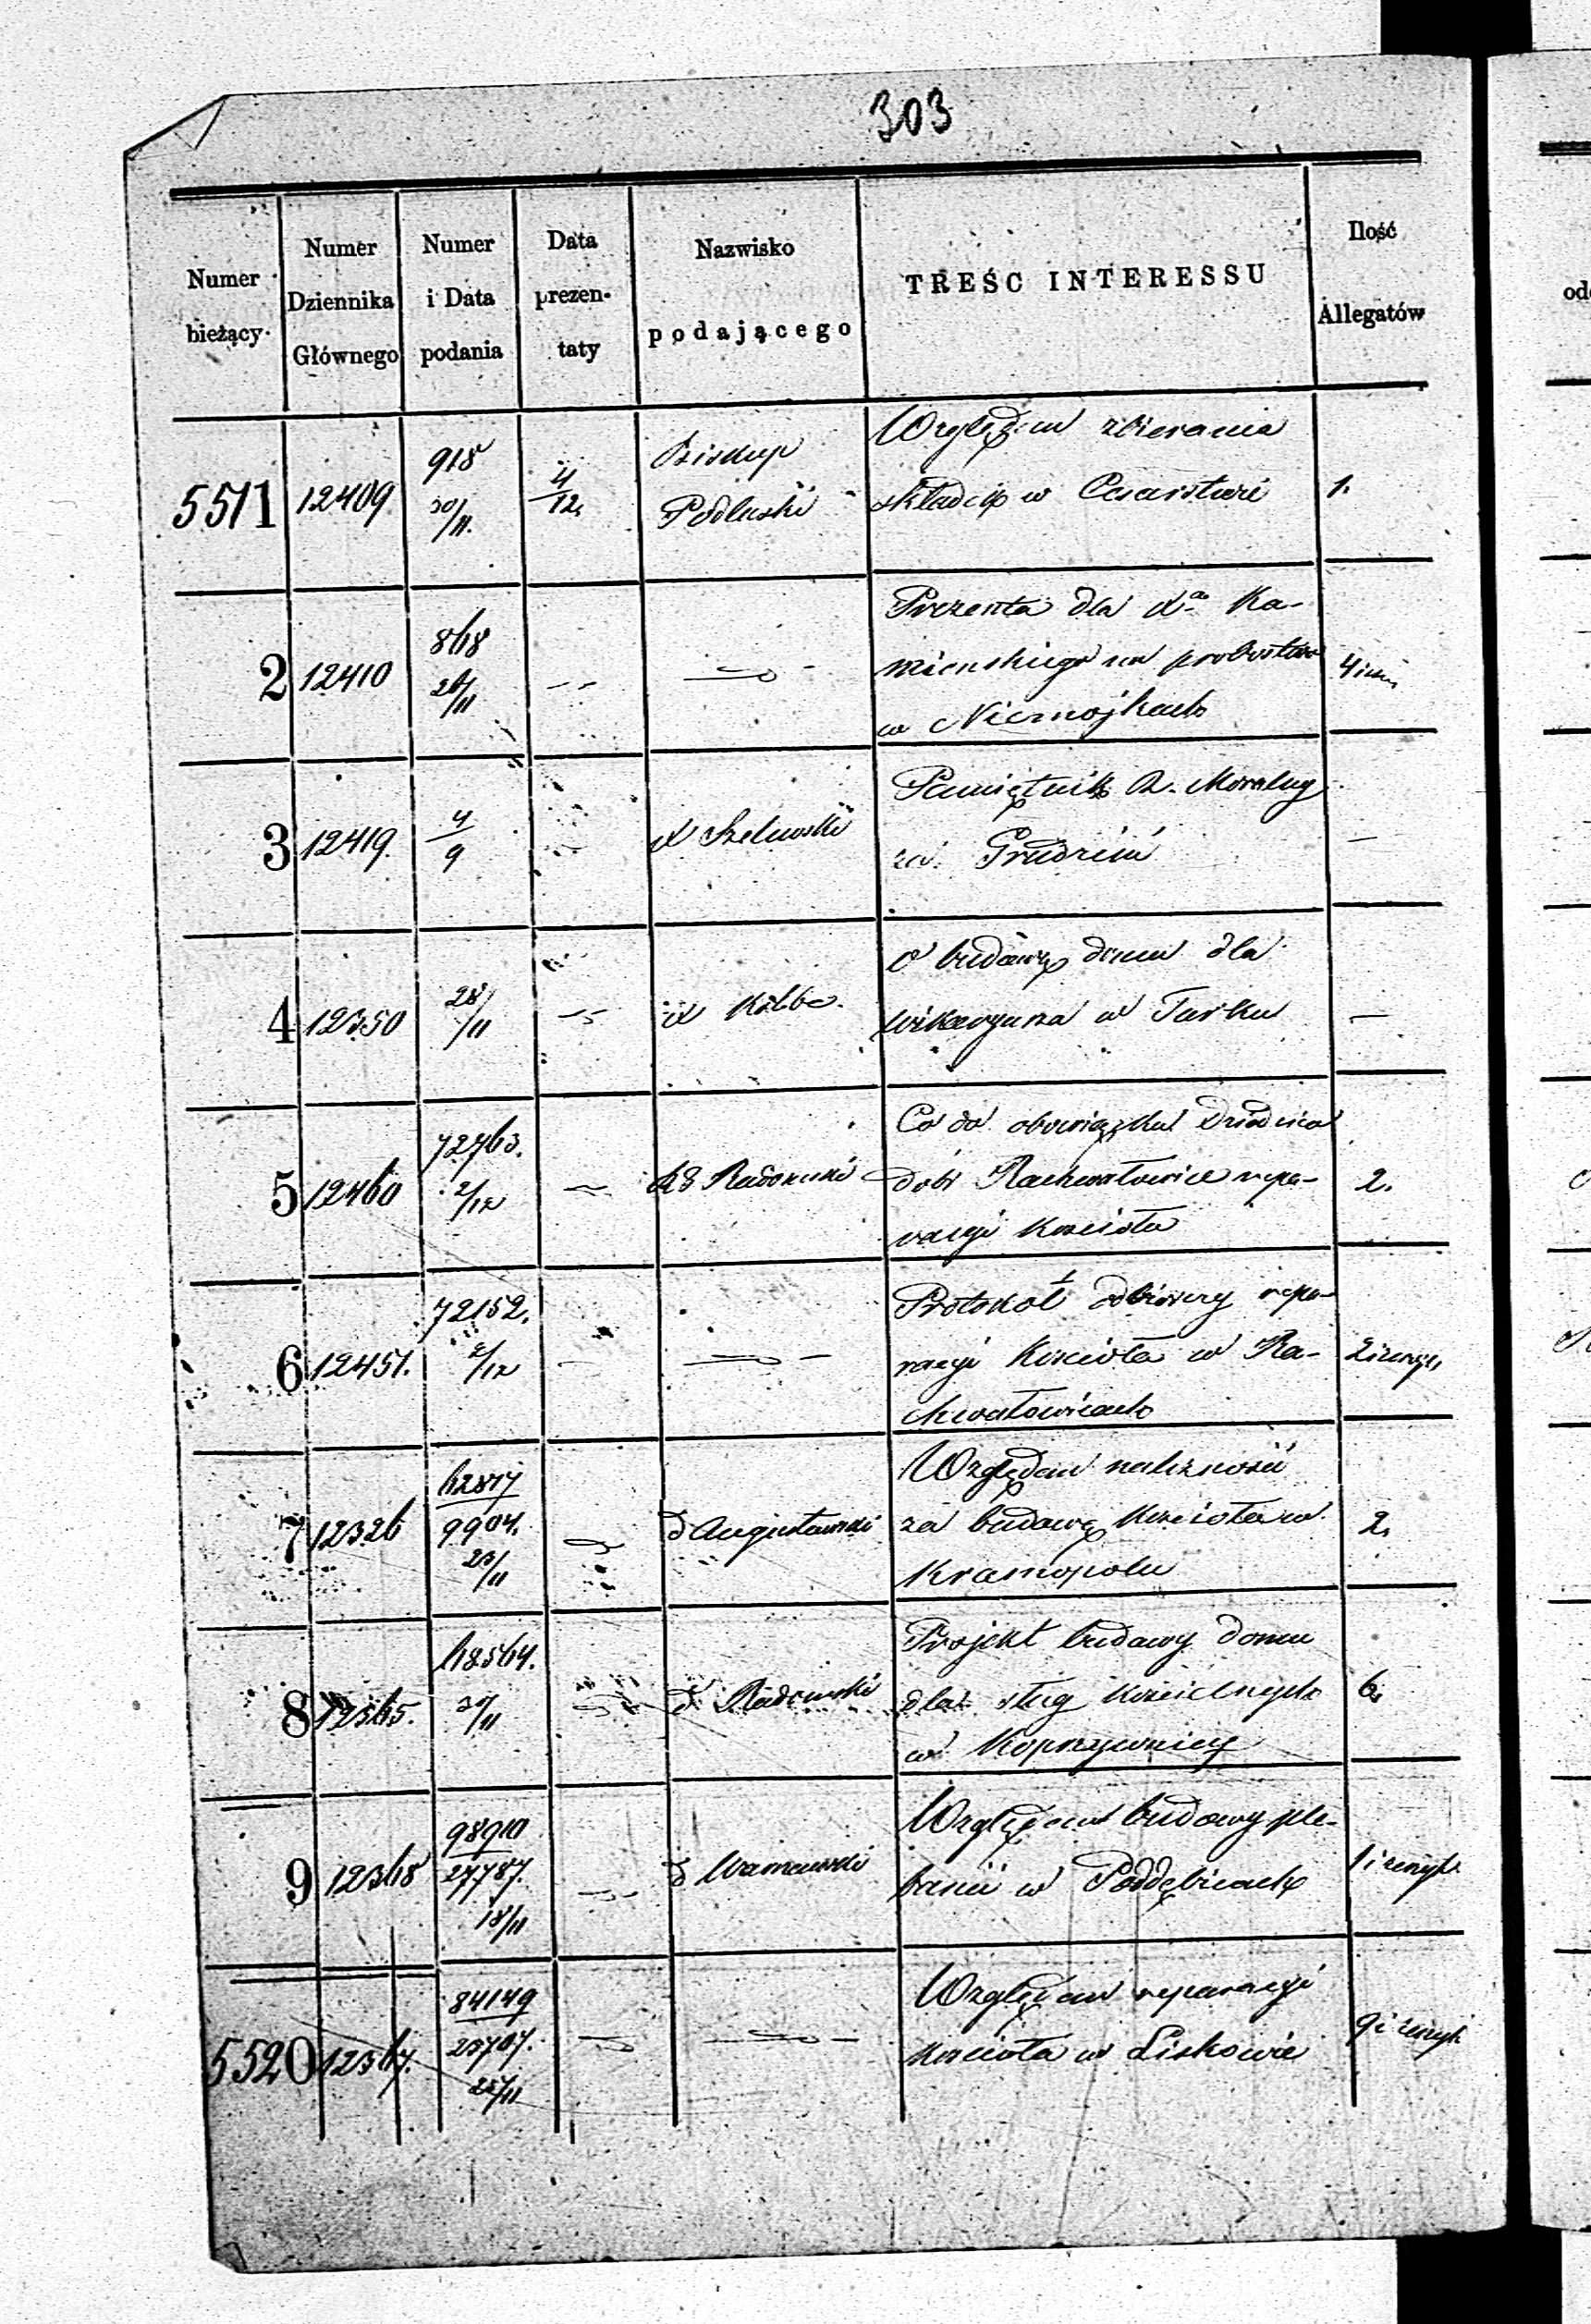 303
Numer bieżący.
Numer Dziennika Głównego
Numer i Data podania
Data prezen- taty
Nazwisko podającego
TREŚĆ INTERESSU
Ilość Allegatów
5511 12409 918 30/11. 4/12. Biskup Podlaski Względem zbierania
składek w Cesarstwie 1.
2 12410 868 26/11 Prezenta dla Xa Ka-
mienskiego na probostwo 4
w Niemojkach
3 12419. 4/9 X Pamiętnik R. Moralny
za Grudzień —
4 12350 28/11 X Kolbe. O budowę domu dla
wikaryusza w Turku —
5 12460 72763. 2/12 Radomski Co do obowiązku Dziedzica
dóbr Rachwałowice repe-
racyi Kościoła 2.
6 12451. 72152. 2/12 Protokół odbiorczy repe-
racyi Kościoła w Ra-
chwałowicach
7 12326 62877 9904. 23/11 Augustowski Względem należności
za budowę Kościoła w 2.
Krasnopolu
8 12365. 68564. 30/11 Radomski Projekt budowy domu
dla sług kościelnych 6.
w Koprzywnicy
9 12368 98910 27787. 18/11 Warszawski Względem budowy ple-
banii w Poddębicach
5520 12367. 84149 23707. 25/11 Względem reparacyi
kościoła w Liskowie